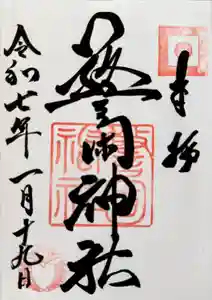 奉拝
警固神社
令和七年一月十九日